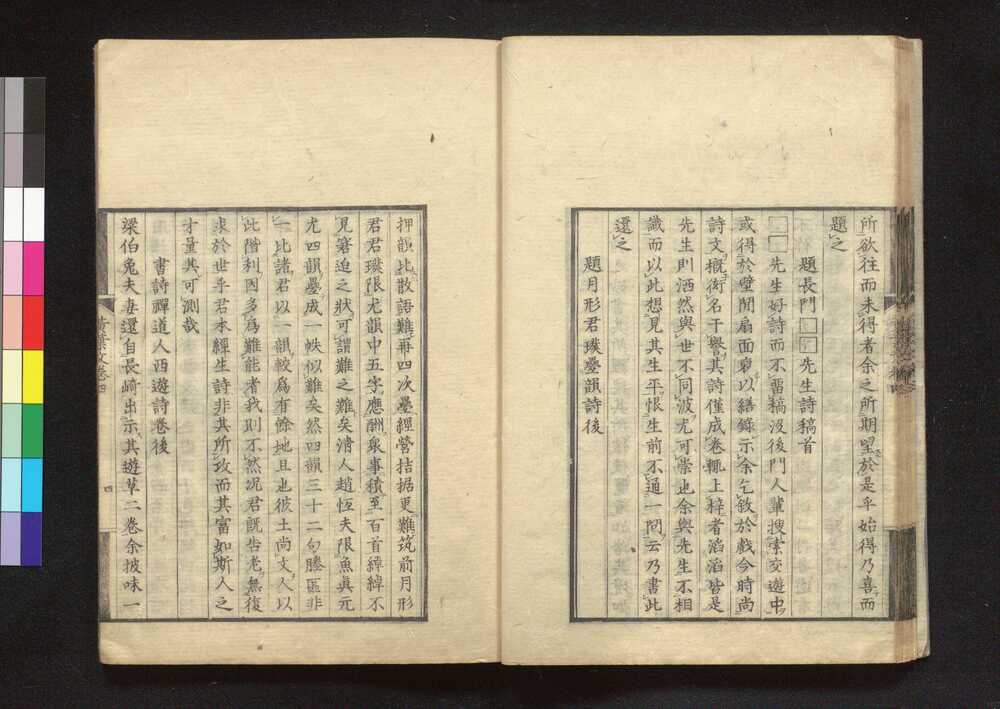 所欲往而未得者余之所期望於是乎始得乃喜而
題之
題長門□□先生詩稿首
□□先生好詩而不畱稿沒後門人輩搜索交遊中
或得於壁間扇面裒以繕錄示余乞敘於戲今時尚
詩文概衒名干譽其詩僅成卷輒上梓者滔滔皆是
先生則洒然與世不同波尤可崇也余與先生不相
識而以此想見其生平恨生前不通一問云乃書此
還之
題月形君璞疊韻詩後
押韻比散語難再四次疊經營拮据更難筑前月形
君君璞限尤韻中五字應酬衆事積至百首綽綽不
見窘迫之狀可謂難之難矣淸人趙恆夫限魚眞元
尤四韻疊成一帙似難矣然四韻三十二句勝區非
一比諸君以一韻較爲有餘地且也彼土尚文人以
此階利因多爲難能者我則不然況君旣告老無復
求於世乎君本經生詩非其所攻而其富如斯人之
才量其可測哉
書詩禪道人西遊詩卷後
梁伯兔夫妻還自長崎出示其遊草二卷余披味一
黃葉文卷四
四